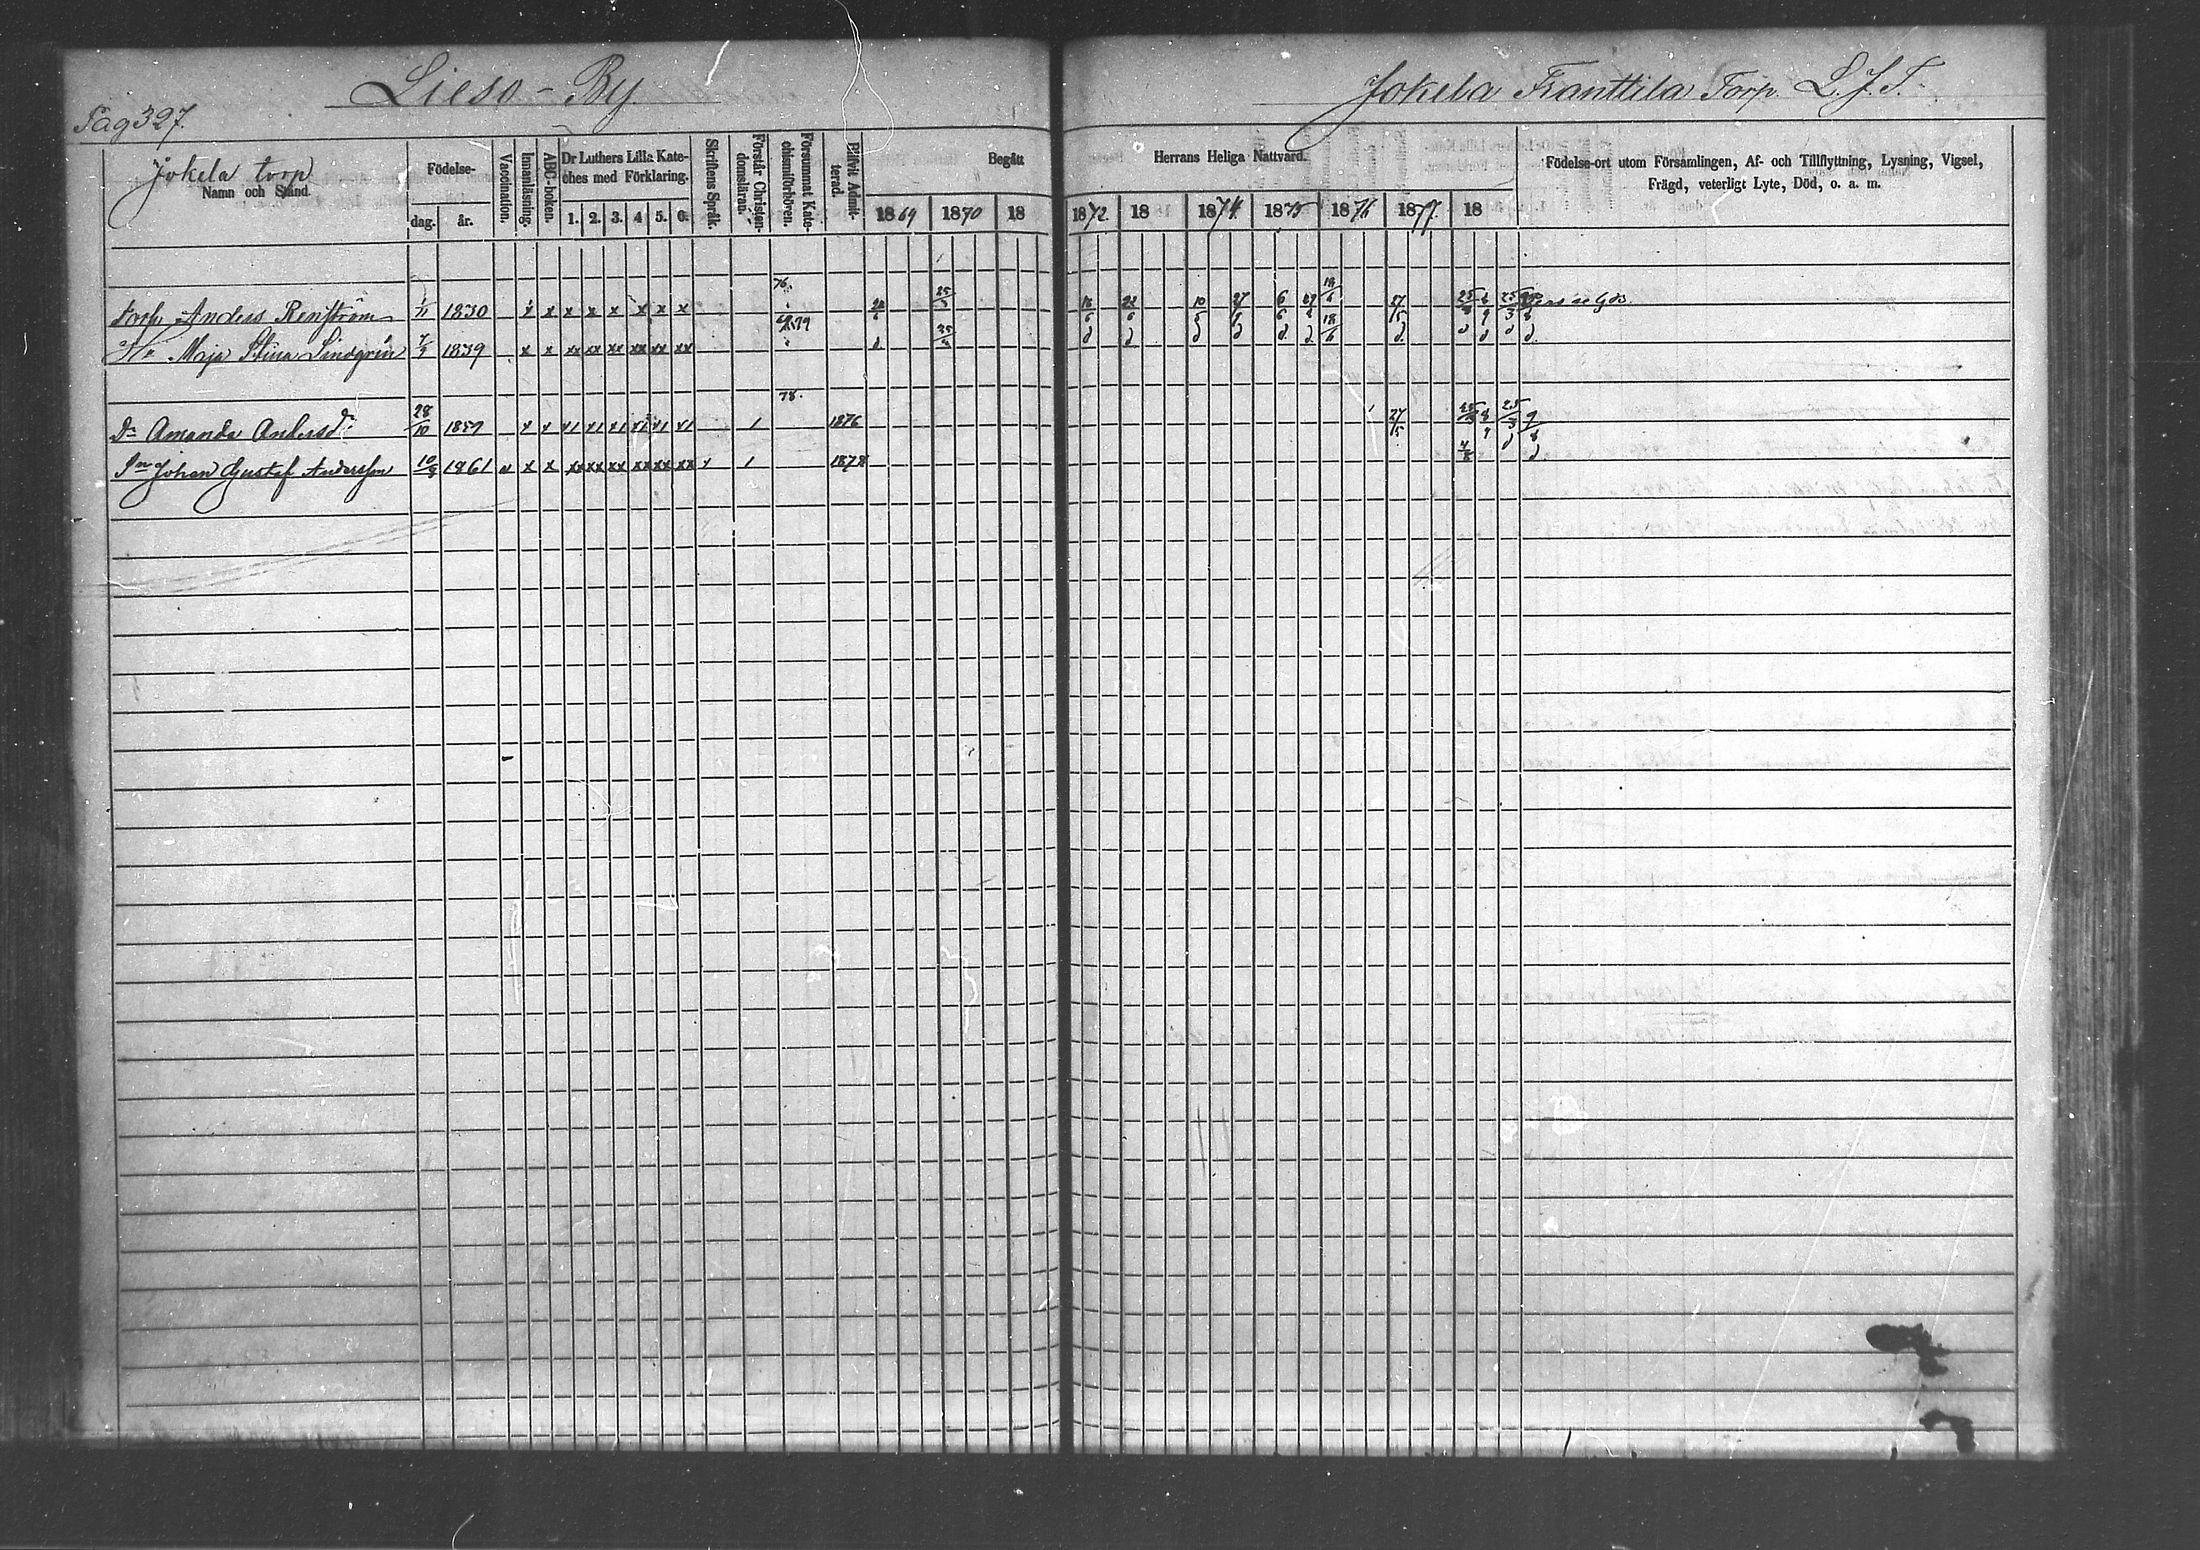 Lieso - By.
Jokela Franttila Torp. L. J. T.
Pag 327.
Jokela torp
Namn och Stånd.
Födelse-
dag. år.
Vaccination.
Innanläsning.
ABC-boken.
Dr Luthers Lilla Kate-
ches med Förklaring.
1. 2. 3. 4 5. 6.
Skriftens Språk.
Förstår Christen-
domsläran.
Försummat Kate-
chismiförhören.
Blifvit Admit-
terad.
Begått
1869 1870 18
Herrans Heliga Nattvard.
1872. 18 1874. 1875 1876 1877. 18
Födelse-ort utom Församlingen, Af- och Tillflyttning, Lysning, Vigsel,
Frägd, veterligt Lyte, Död, o. a. m.
76.
Torp. Anders Renström 1/11 1830 x x x x x x x x
Hu Maja Stina Lindgrén 1839 x x xx xx xx xx xx xx
78.
Dr Amanda Andersdr 28/10 1857 x x x1 x1 x1 x1 x1 x1 1 1876 27/5
Sn Johan Gustaf Andersson 10/9 1861 v x x xx xx xx xx xx xx 1 1878